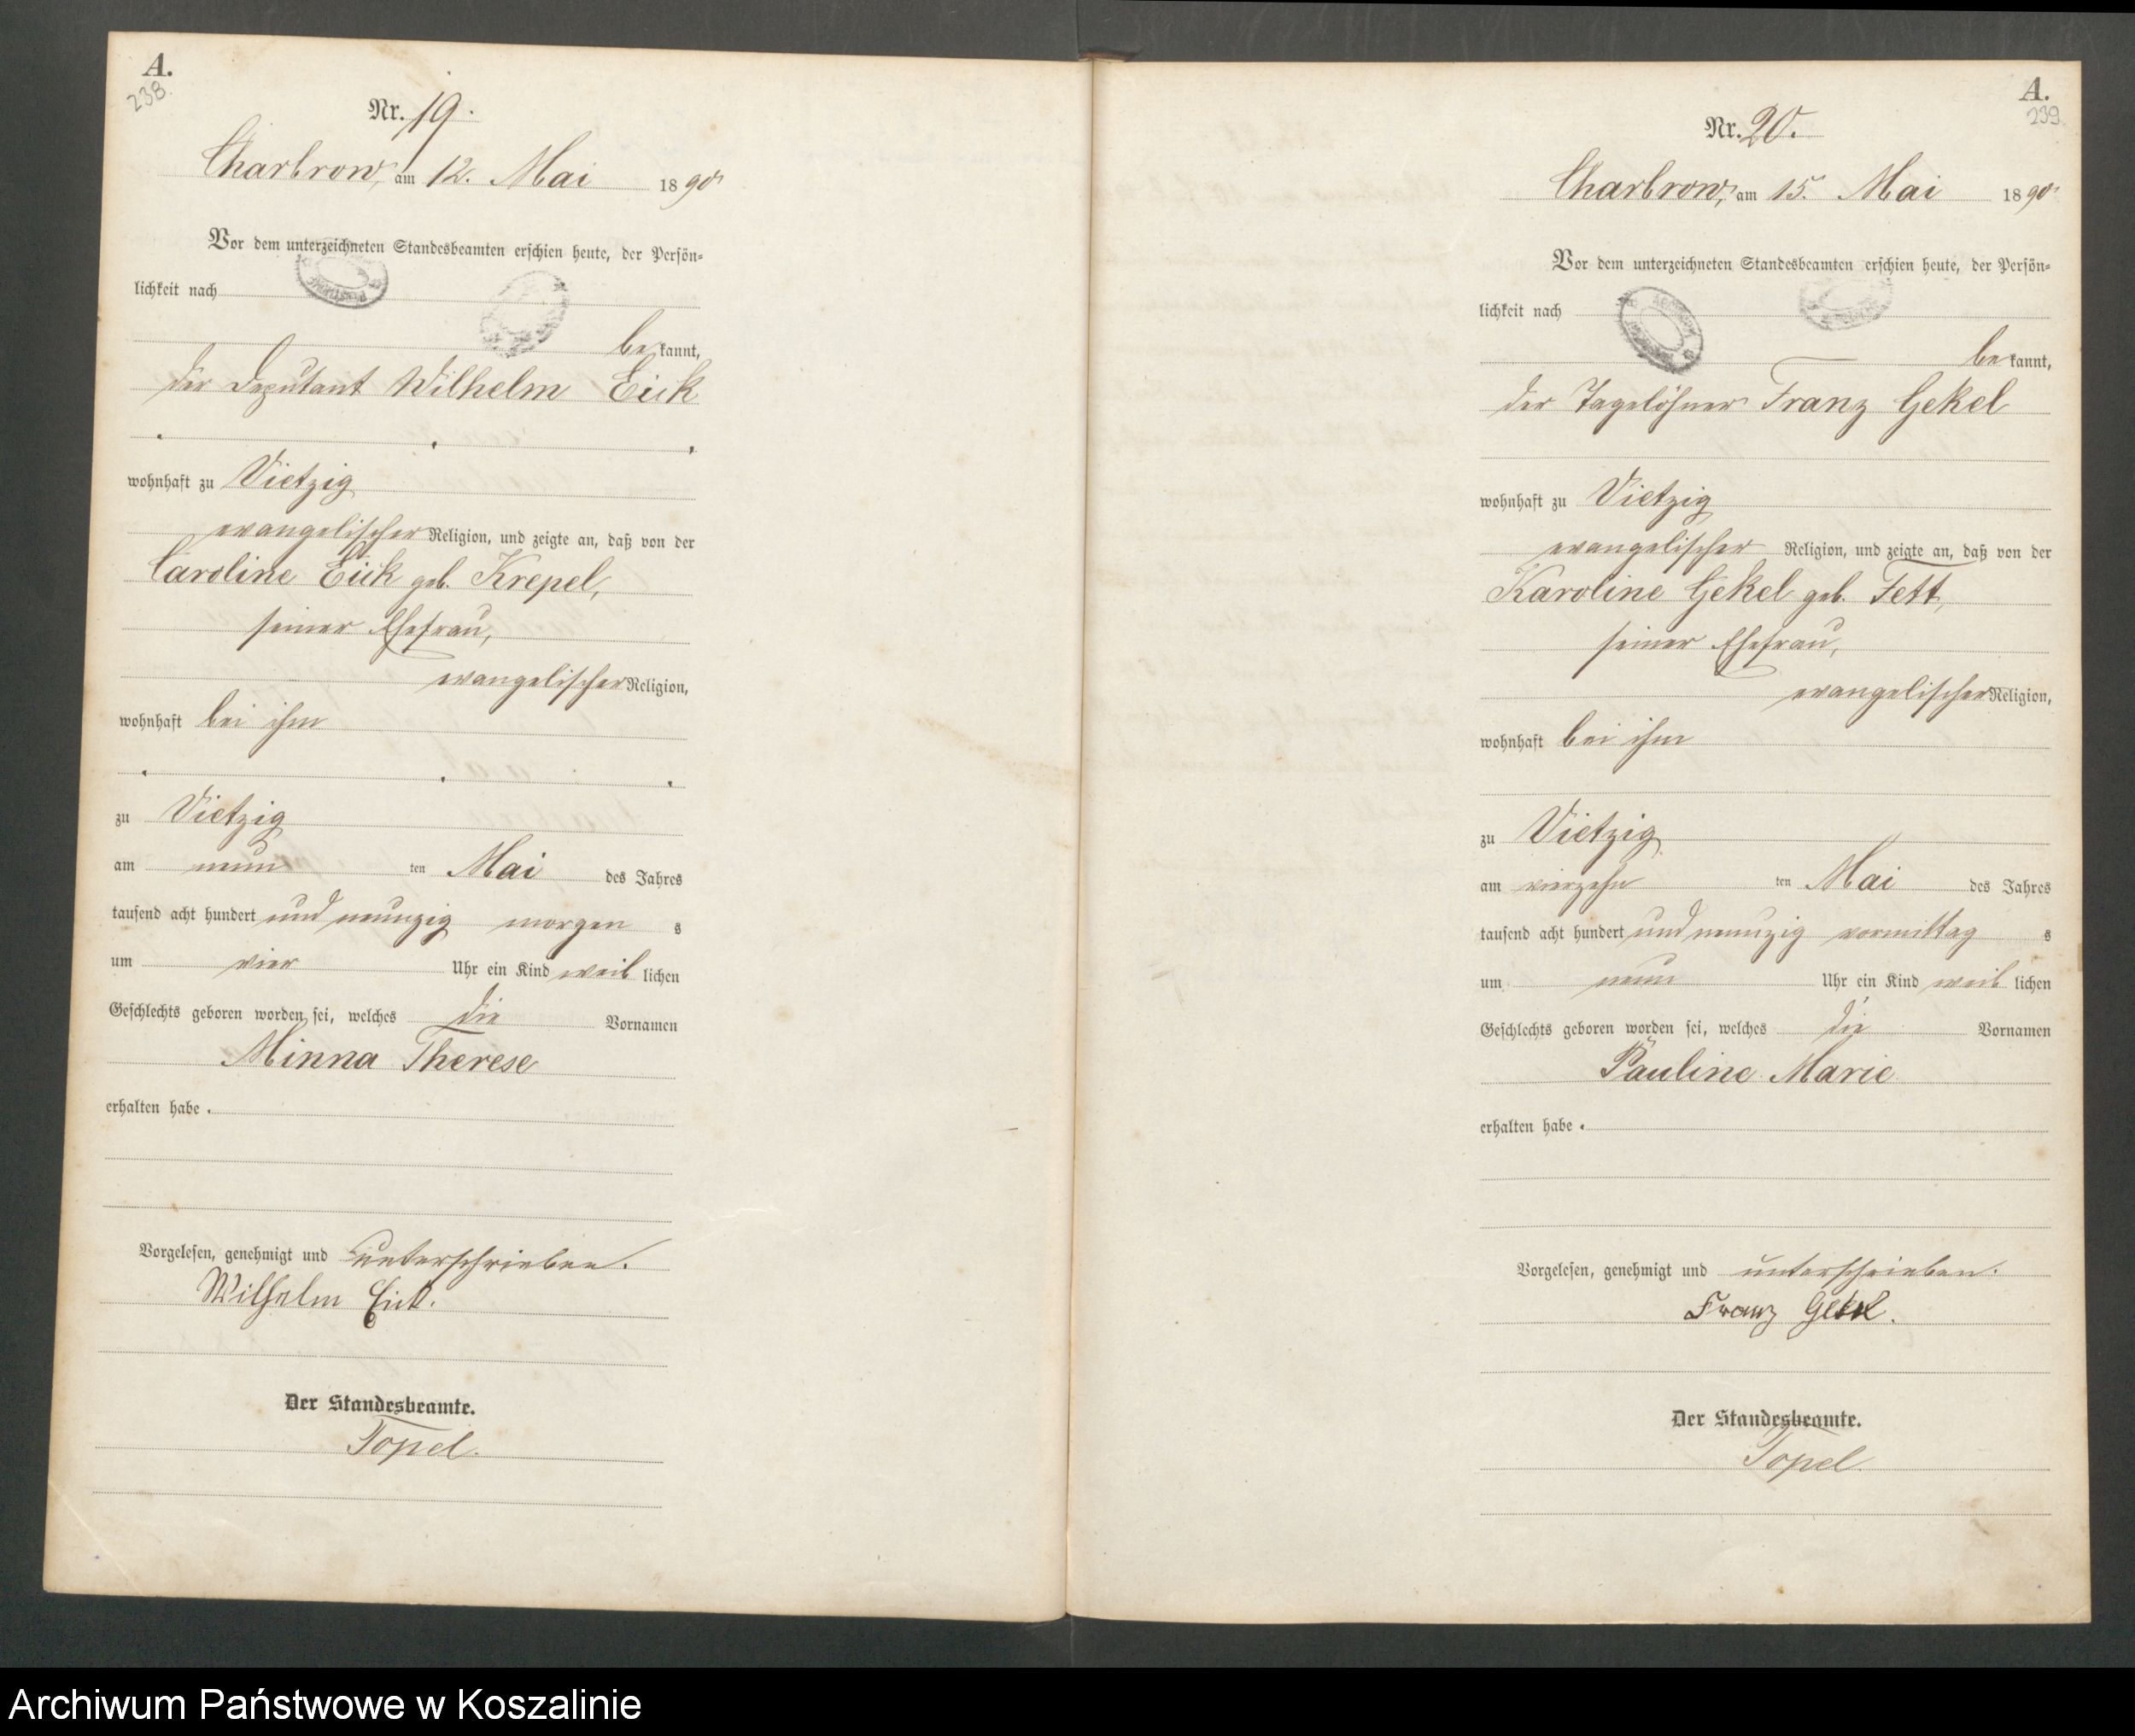 A.
238.
Nr. 19.
Charbrow, am 12. Mai 1890
Vor dem unterzeichneten Standesbeamten erschien heute, der Persön-
lichkeit nach
bekannt,
der Deputant Wilhelm Eick
wohnhaft zu Vietzig
evangelischer Religion, und zeigte an, daß von der
Caroline Eick geb. Krepel,
seiner Ehefrau,
evangelischer Religion,
wohnhaft bei ihm
zu Vietzig
am neun ten Mai des Jahres
tausend acht hundert und neunzig morgen s
um vier Uhr ein Kind weiblichen
Geschlechts geboren worden sei, welches die Vornamen
Minna Therese
erhalten habe.
Vorgelesen, genehmigt und unterschrieben.
Wilhelm Eick.
Der Standesbeamte.
Topel.
A.
239
Nr. 20.
Charbrow, am 15. Mai 1890
Vor dem unterzeichneten Standesbeamten erschien heute, der Persön-
lichkeit nach
bekannt,
der Tagelöhner Franz Gekel
wohnhaft zu Vietzig
evangelischer Religion, und zeigte an, daß von der
Karoline Gekel geb. Fett,
seiner Ehefrau,
evangelischer Religion,
wohnhaft bei ihm
zu Vietzig
am vierzehn ten Mai des Jahres
tausend acht hundert und neunzig vormittag s
um neun Uhr ein Kind weiblichen
Geschlechts geboren worden sei, welches die Vornamen
Pauline Marie
erhalten habe.
Vorgelesen, genehmigt und unterschrieben.
Franz Gekel.
Der Standesbeamte.
Topel.
Archiwum Państwowe w Koszalinie